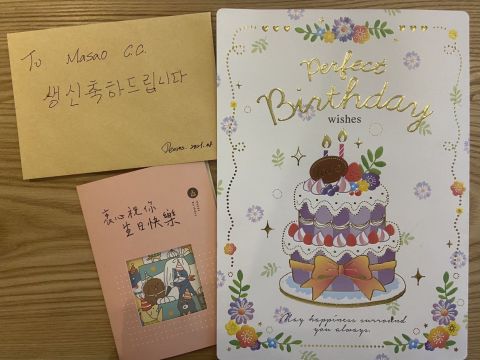 To Masao C.C.
생신축하드립니다
衷心祝你
生日快樂
Perfect
Birthday
wishes
May happiness surround
you always.